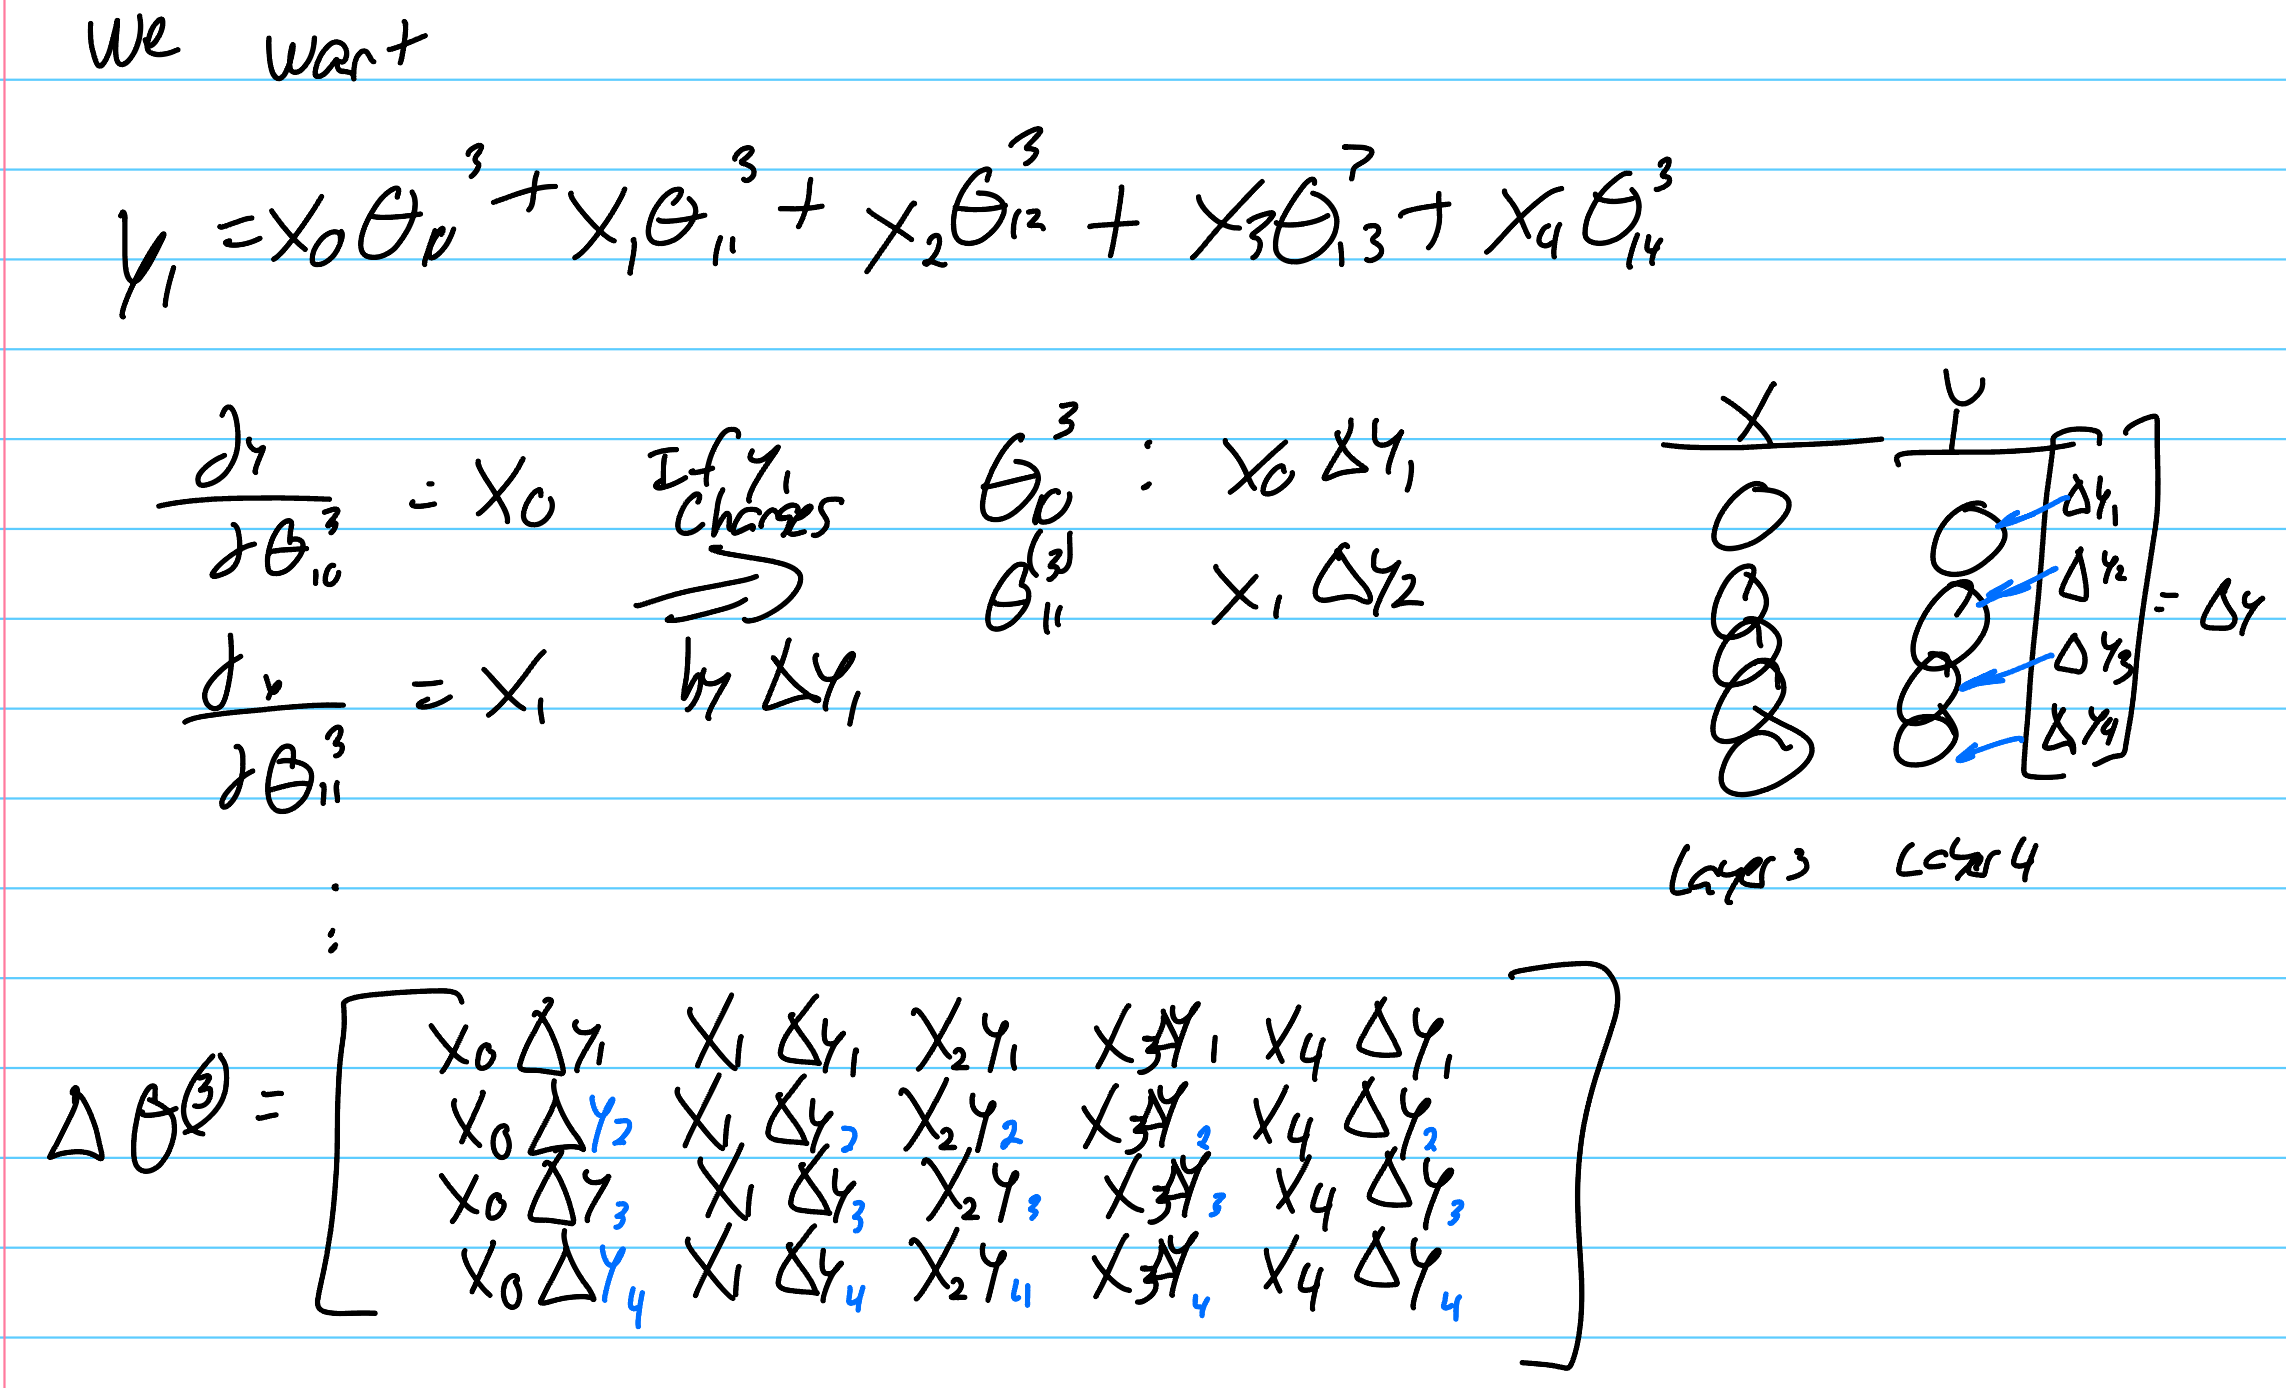 We want
y₁ = x₀θ₁₀³ + x₁θ₁₁³ + x₂θ₁₂³ + x₃θ₁₃³ + x₄θ₁₄³
∂y/∂θ₁₀³ = x₀ If y₁ changes ⇒ by Δy₁
θ₁₀³ : x₀ Δy₁
∂y/∂θ₁₁³ = x₁
θ₁₁⁽³⁾ x₁ Δy₂
X Y
[Δy₁
Δy₂
Δy₃
Δy₄] = Δy
Layer 3 Layer 4
⋮
Δθ⁽³⁾ = [
x₀ Δy₁ x₁ Δy₁ x₂ y₁ x₃ Δy₁ x₄ Δy₁
x₀ Δy₂ x₁ Δy₂ x₂ y₂ x₃ Δy₂ x₄ Δy₂
x₀ Δy₃ x₁ Δy₃ x₂ y₃ x₃ Δy₃ x₄ Δy₃
x₀ Δy₄ x₁ Δy₄ x₂ y₄ x₃ Δy₄ x₄ Δy₄
]